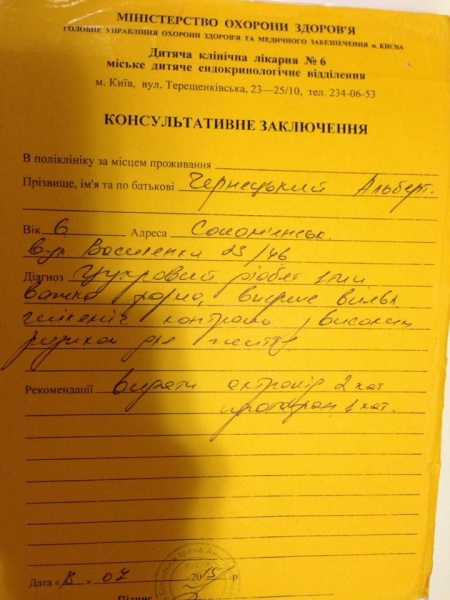 МІНІСТЕРСТВО ОХОРОНИ ЗДОРОВ'Я
ГОЛОВНЕ УПРАВЛІННЯ ОХОРОНИ ЗДОРОВ'Я ТА МЕДИЧНОГО ЗАБЕЗПЕЧЕННЯ м. КИЄВА
Дитяча клінічна лікарня № 6
міське дитяче ендокринологічне відділення
м. Київ, вул. Терещенківська, 23—25/10, тел. 234-06-53
КОНСУЛЬТАТИВНЕ ЗАКЛЮЧЕННЯ
В поліклініку за місцем проживання
Прізвище, ім'я та по батькові Чернецький Альберт
Вік 6 Адреса Солом'янськ.
вул Василенка 23/46
Діагноз Цукровий діабет І тип
важка форма,
контроль, високий
ризик для життя
Рекомендації видати актрапід 2 кат
протафан 1 кат.
Дата « » 07 2015 р
Підпис